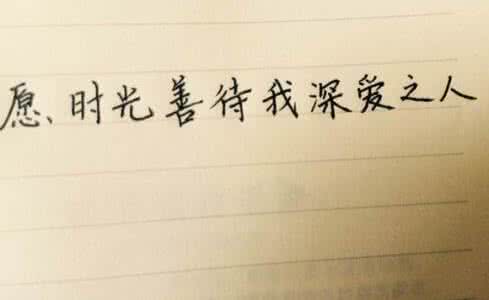 愿、时光善待我深爱之人